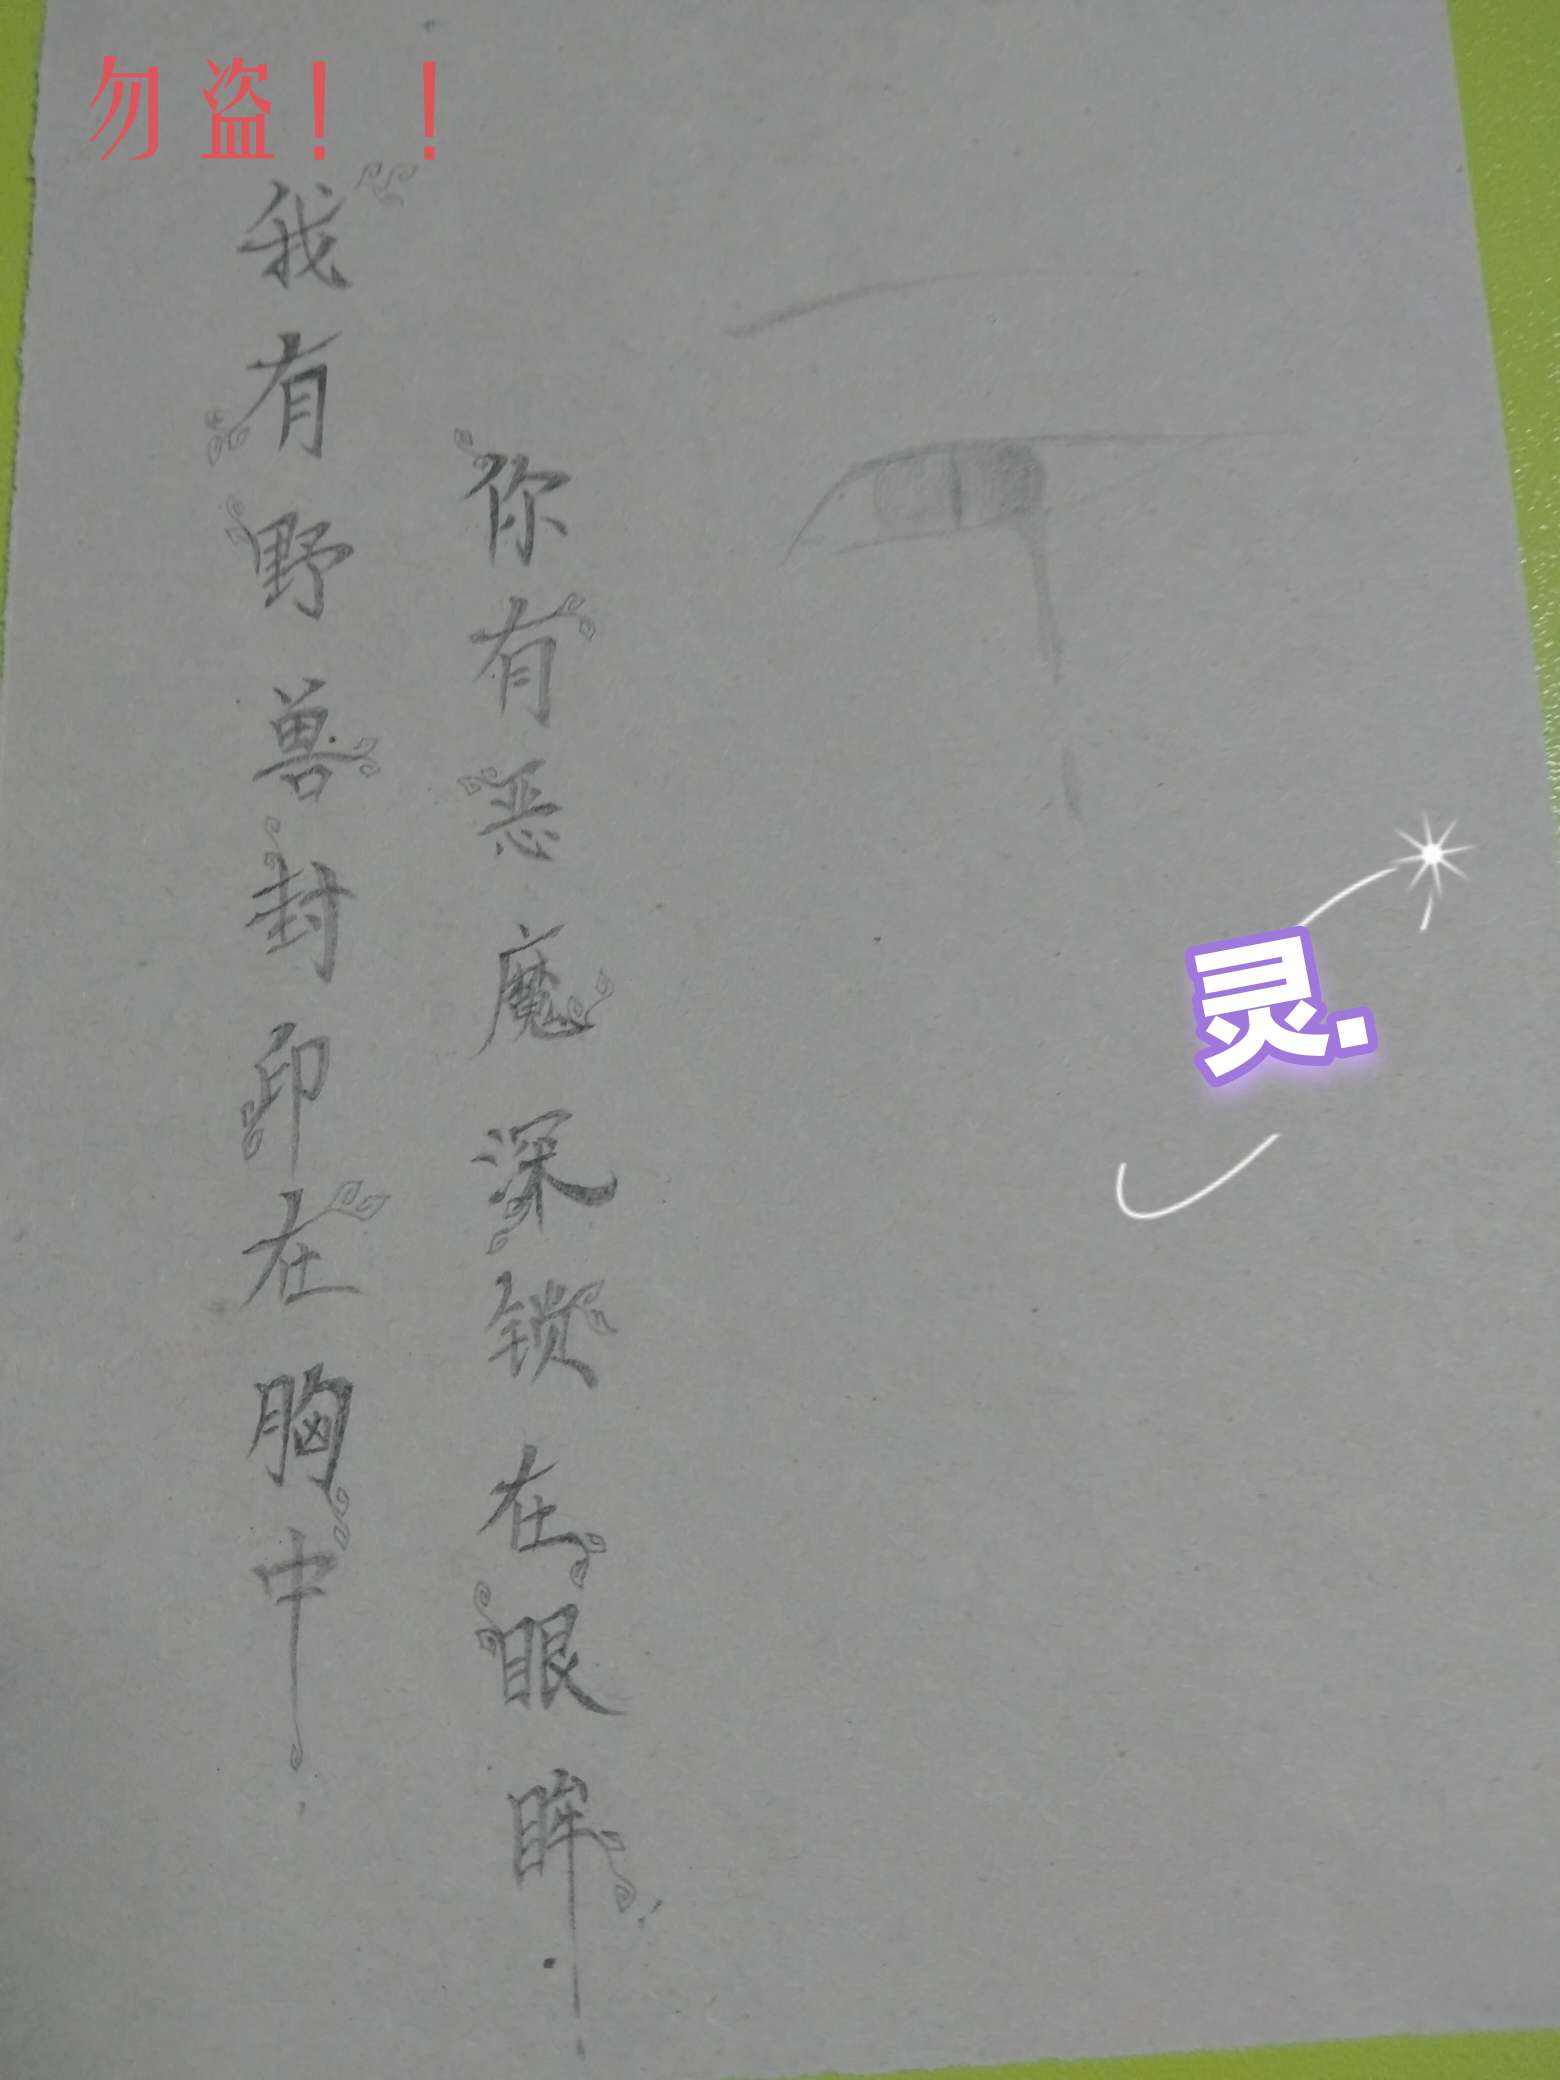 勿盗！！
我有野兽封印在胸中
你有恶魔深锁在眼眸
灵.